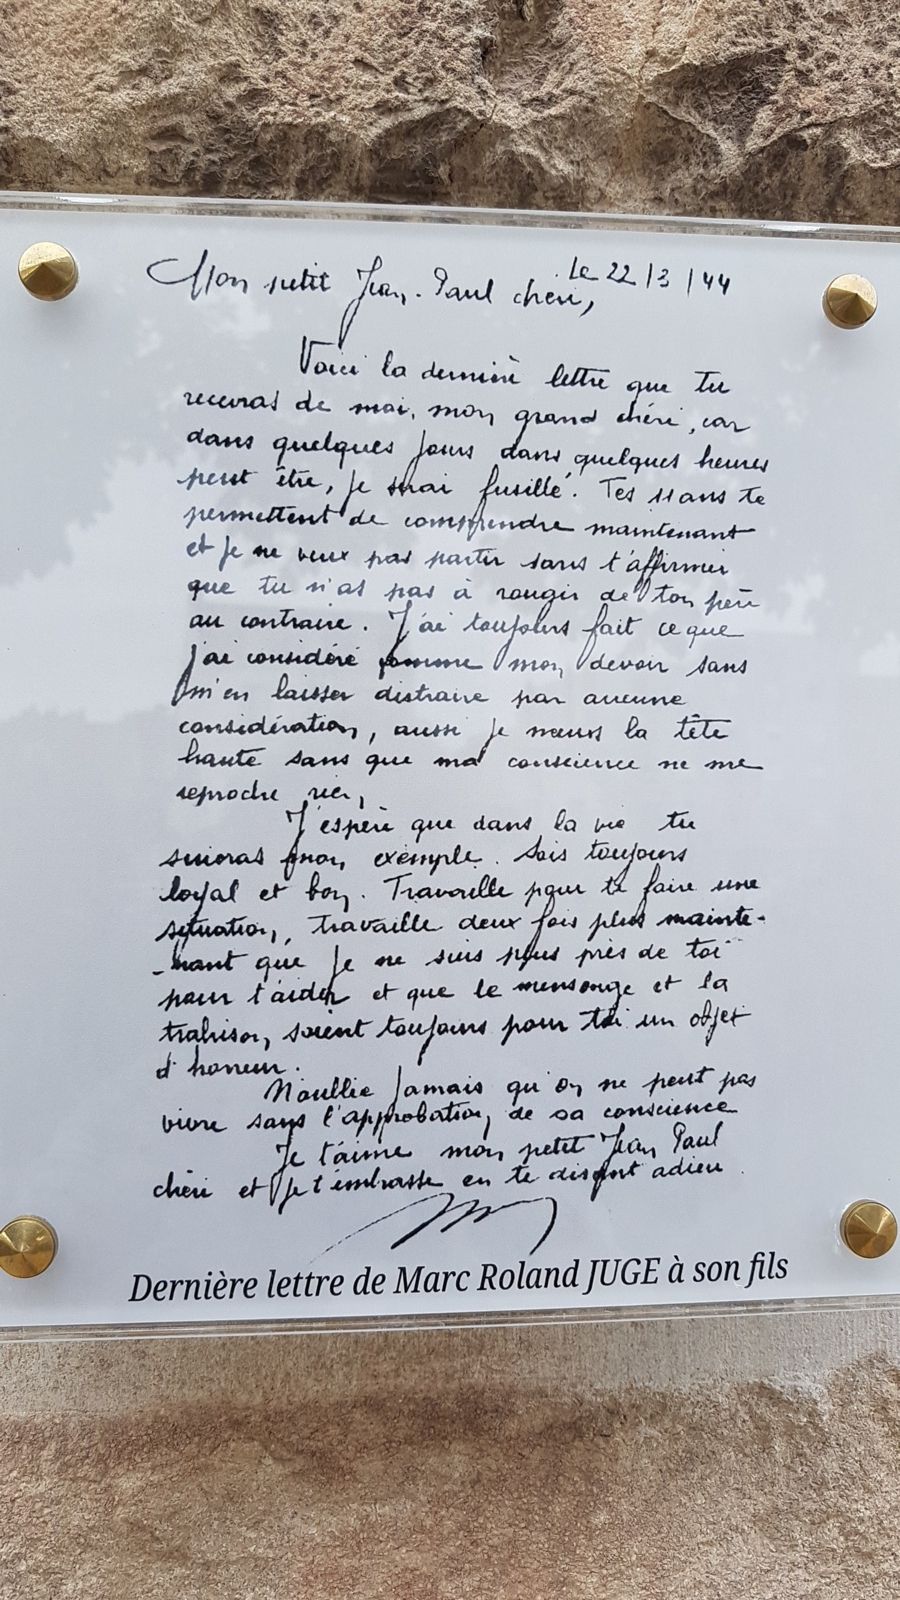 Le 22/3/44
Mon petit Jean-Paul chéri,
Voici la dernière lettre que tu
recevras de moi, mon grand chéri, car
dans quelques jours dans quelques heures
peut être, je serai fusillé. Tes 11 ans te
permettent de comprendre maintenant
et je ne veux pas partir sans t'affirmer
que tu n'as pas à rougir de ton père
au contraire. J'ai toujours fait ce que
j'ai considéré comme mon devoir sans
m'en laisser distraire par aucune
considération, aussi je meurs la tête
haute sans que ma conscience ne me
reproche rien,
J'espère que dans la vie tu
suivras mon exemple. Sois toujours
loyal et bon. Travaille pour te faire une
situation, travaille deux fois plus mainte-
-nant que je ne suis plus près de toi
pour t'aider et que le mensonge et la
trahison, soient toujours pour toi un objet
d'horreur.
N'oublie jamais qu'on ne peut pas
vivre sans l'approbation, de sa conscience
Je t'aime mon petit Jean Paul
chéri et je t'embrasse en te disant adieu.
Dernière lettre de Marc Roland JUGE à son fils